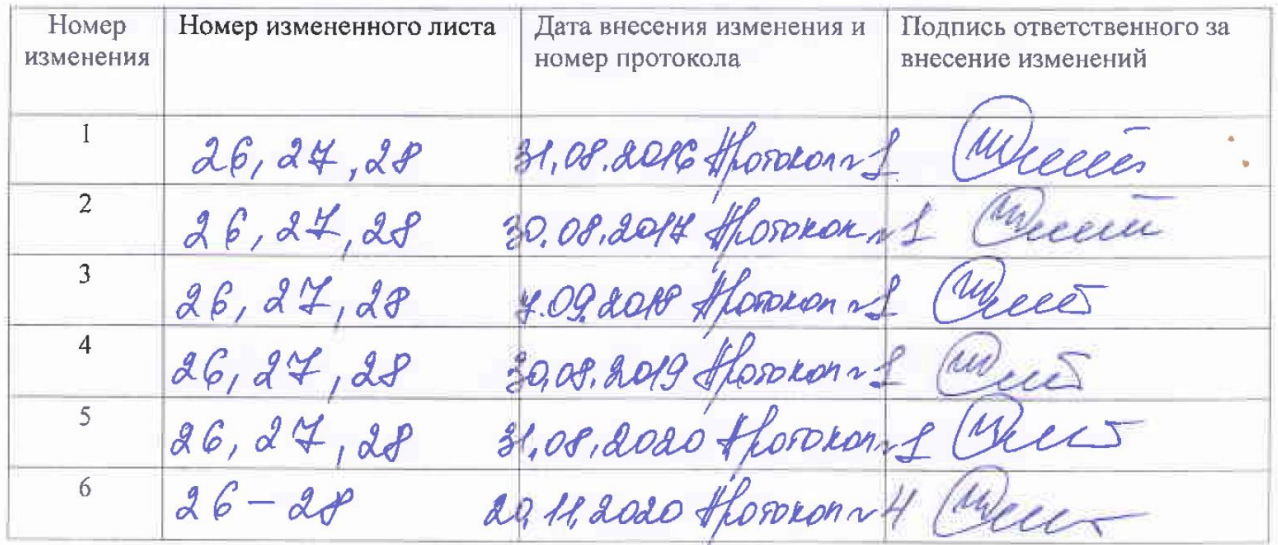 Номер изменения Номер измененного листа Дата внесения изменения и номер протокола Подпись ответственного за внесение изменений
1 26, 27, 28 31.08.2016 Протокол № 1
2 26, 27, 28 30.08.2017 Протокол № 1
3 26, 27, 28 7.09.2018 Протокол № 1
4 26, 27, 28 30.08.2019 Протокол № 1
5 26, 27, 28 31.08.2020 Протокол № 1
6 26 – 28 20.11.2020 Протокол № 4